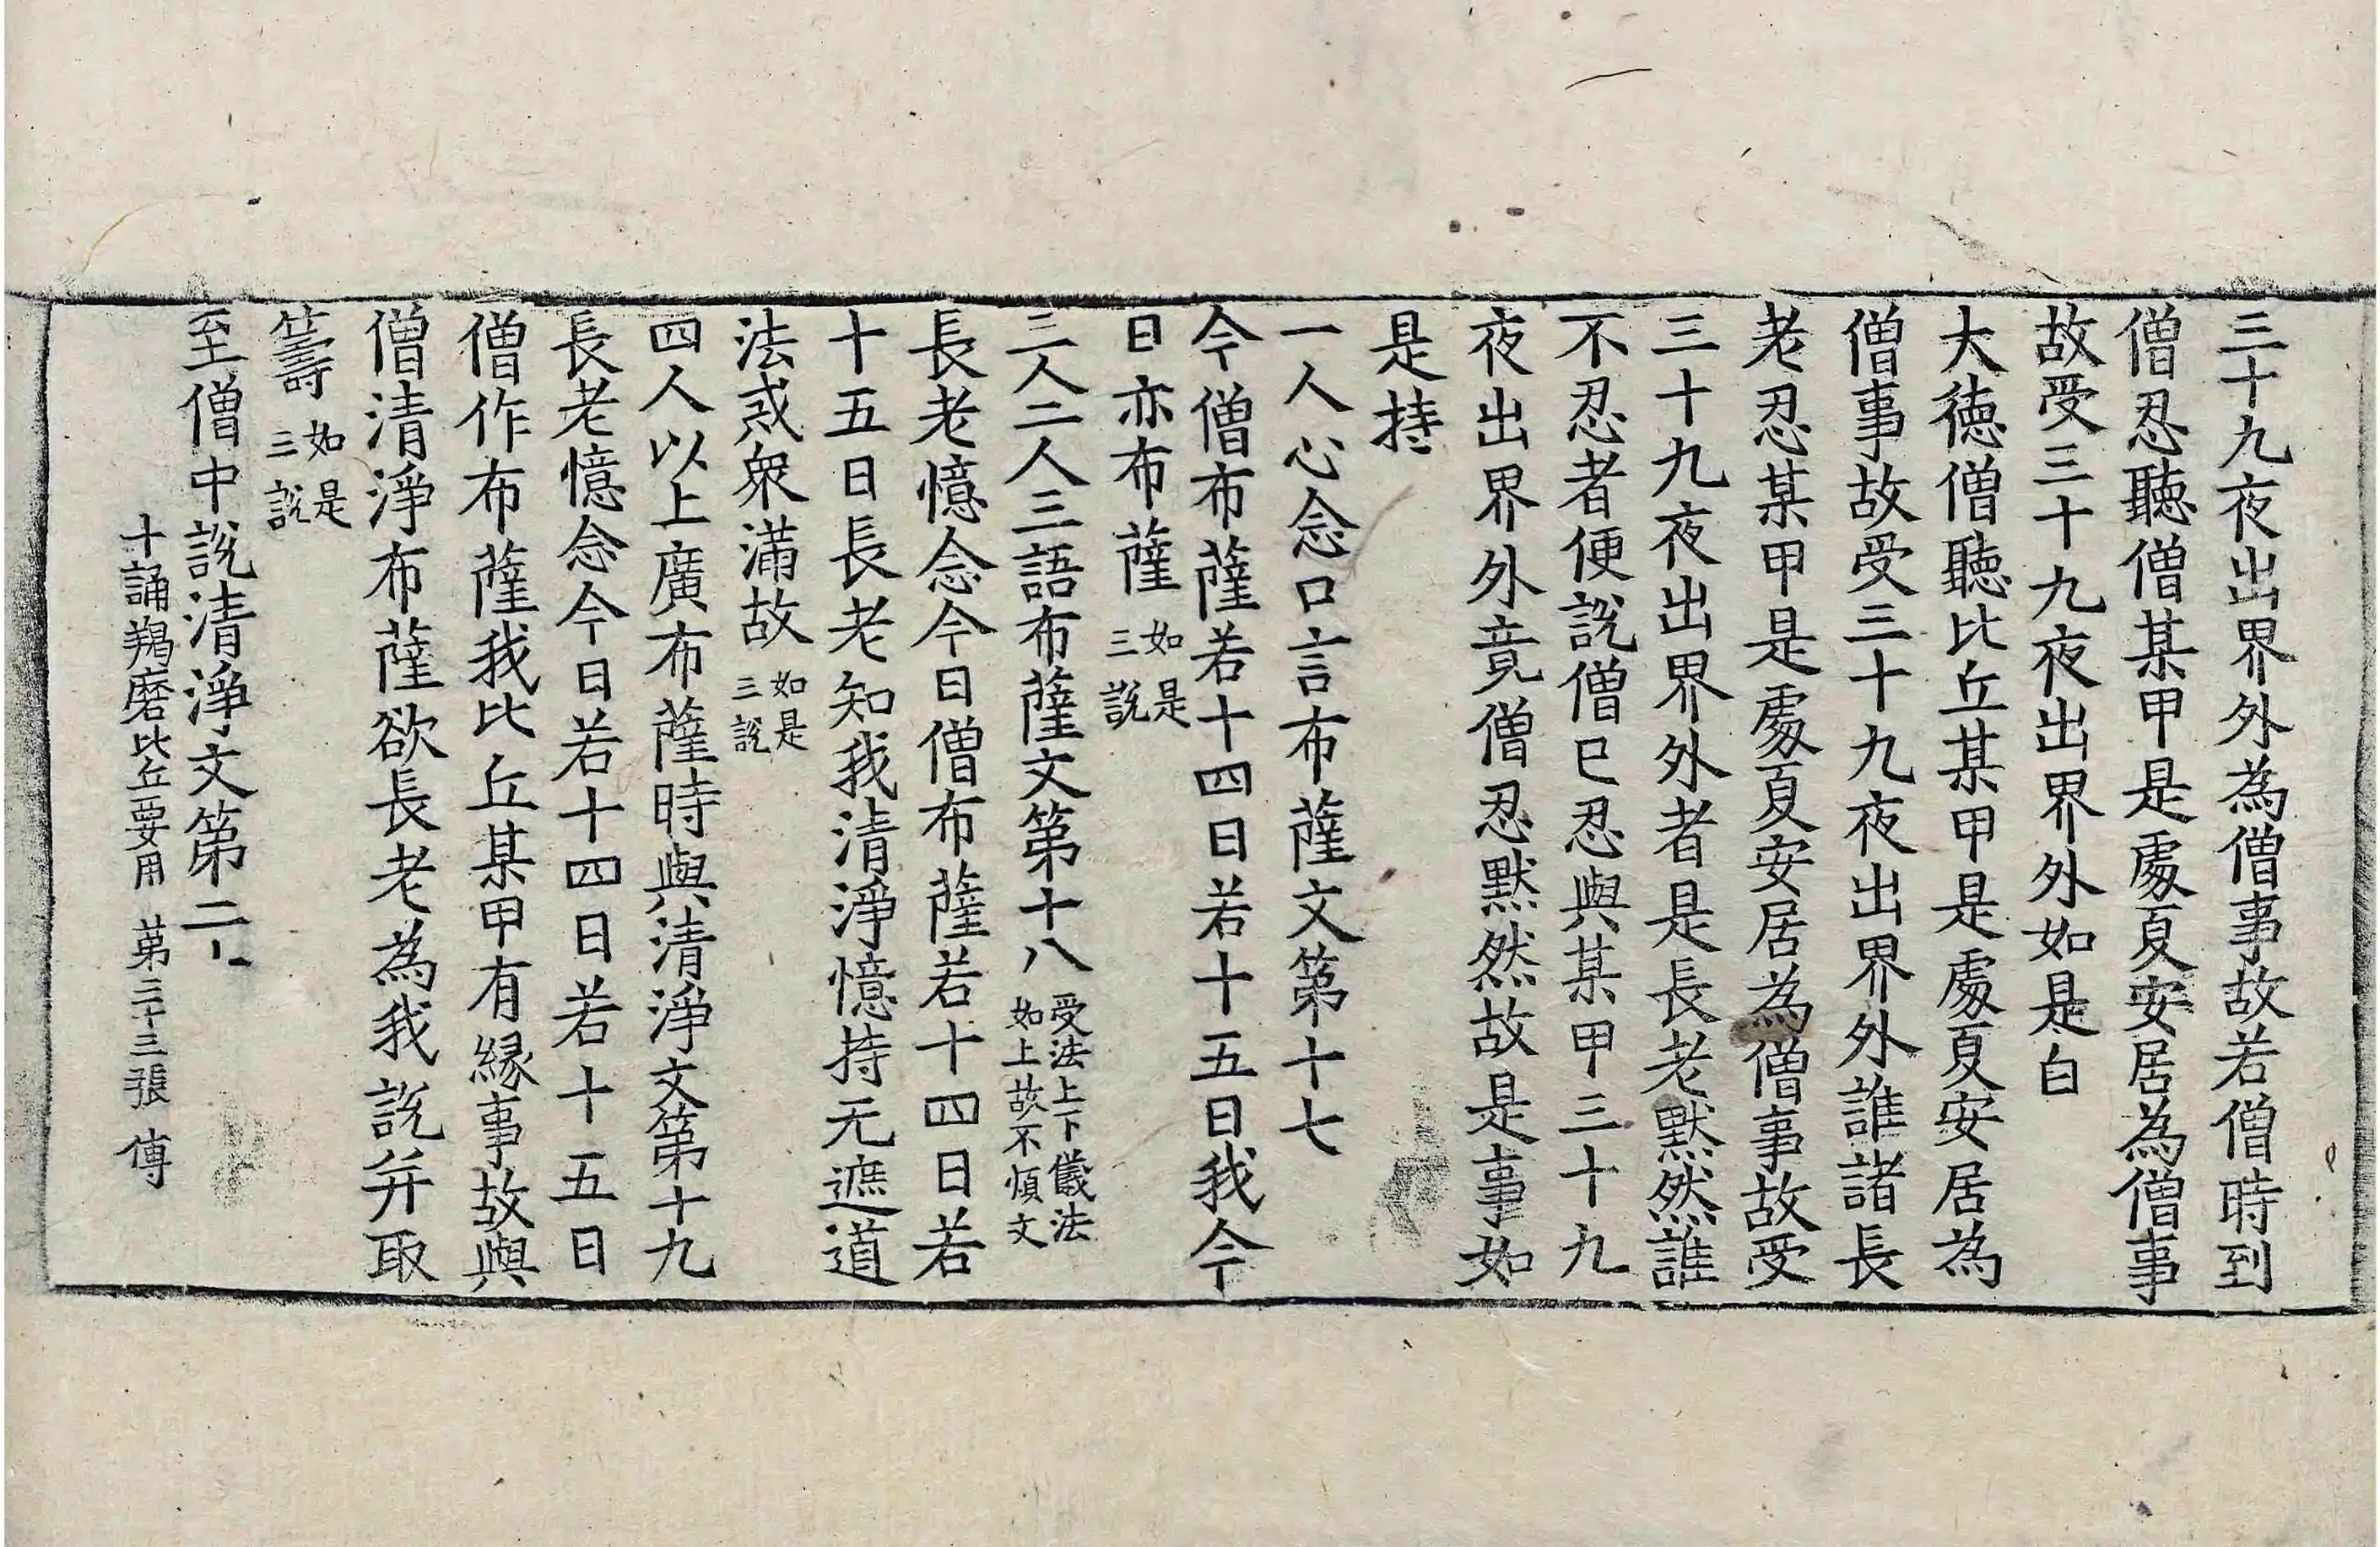 三十九夜出界外為僧事故若僧時到
僧忍聽僧某甲是處夏安居為僧事
故受三十九夜出界外如是白
大德僧聽比丘某甲是處夏安居為
僧事故受三十九夜出界外誰諸長
老忍某甲是處夏安居為僧事故受
三十九夜出界外者是長老默然誰
不忍者便說僧已忍與某甲三十九
夜出界外竟僧忍默然故是事如
是持
一人心念口言布薩文第十七
今僧布薩若十四日若十五日我今
日亦布薩如是三說
三人二人三語布薩文第十八受法上下儀法如上故不煩文
長老憶念今日僧布薩若十四日若
十五日長老知我清淨憶持无遮道
法或衆滿故如是三說
四人以上廣布薩時與清淨文第十九
長老憶念今日若十四日若十五日
僧作布薩我比丘某甲有緣事故與
僧清淨布薩欲長老為我說并取
籌如是三說
至僧中說清淨文第二十
十誦羯磨比丘要用 第二十三張 傳